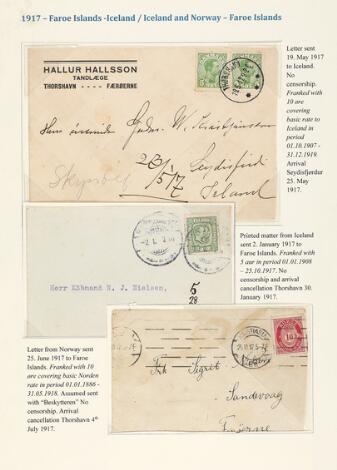 1917 – Faroe Islands -Iceland / Iceland and Norway – Faroe Islands
HALLUR HALLSSON
TANDLÆGE
THORSHAVN - - - - FÆRØERNE
Seydisfirdi
Island
Letter sent
19. May 1917
to Iceland.
No
censorship.
Franked with
10 øre
covering
basic rate to
Iceland in
period
01.10.1907 -
31.12.1919.
Arrival
Seydisfjerdur
25. May
1917.
Herr Købmand N. J. Nielsen,
5
28
Printed matter from Iceland
sent 2. January 1917 to
Faroe Islands. Franked with
5 aur in period 01.01.1908
– 25.10.1917. No
censorship and arrival
cancellation Thorshavn 30.
January 1917.
Letter from Norway sent
25. June 1917 to Faroe
Islands. Franked with 10
øre covering basic Norden
rate in period 01.01.1886 -
31.05.1918. Assumed sent
with "Beskytteren" No
censorship. Arrival
cancellation Thorshavn 4th
July 1917.
Frk Segret
Sandevaag
Færøerne